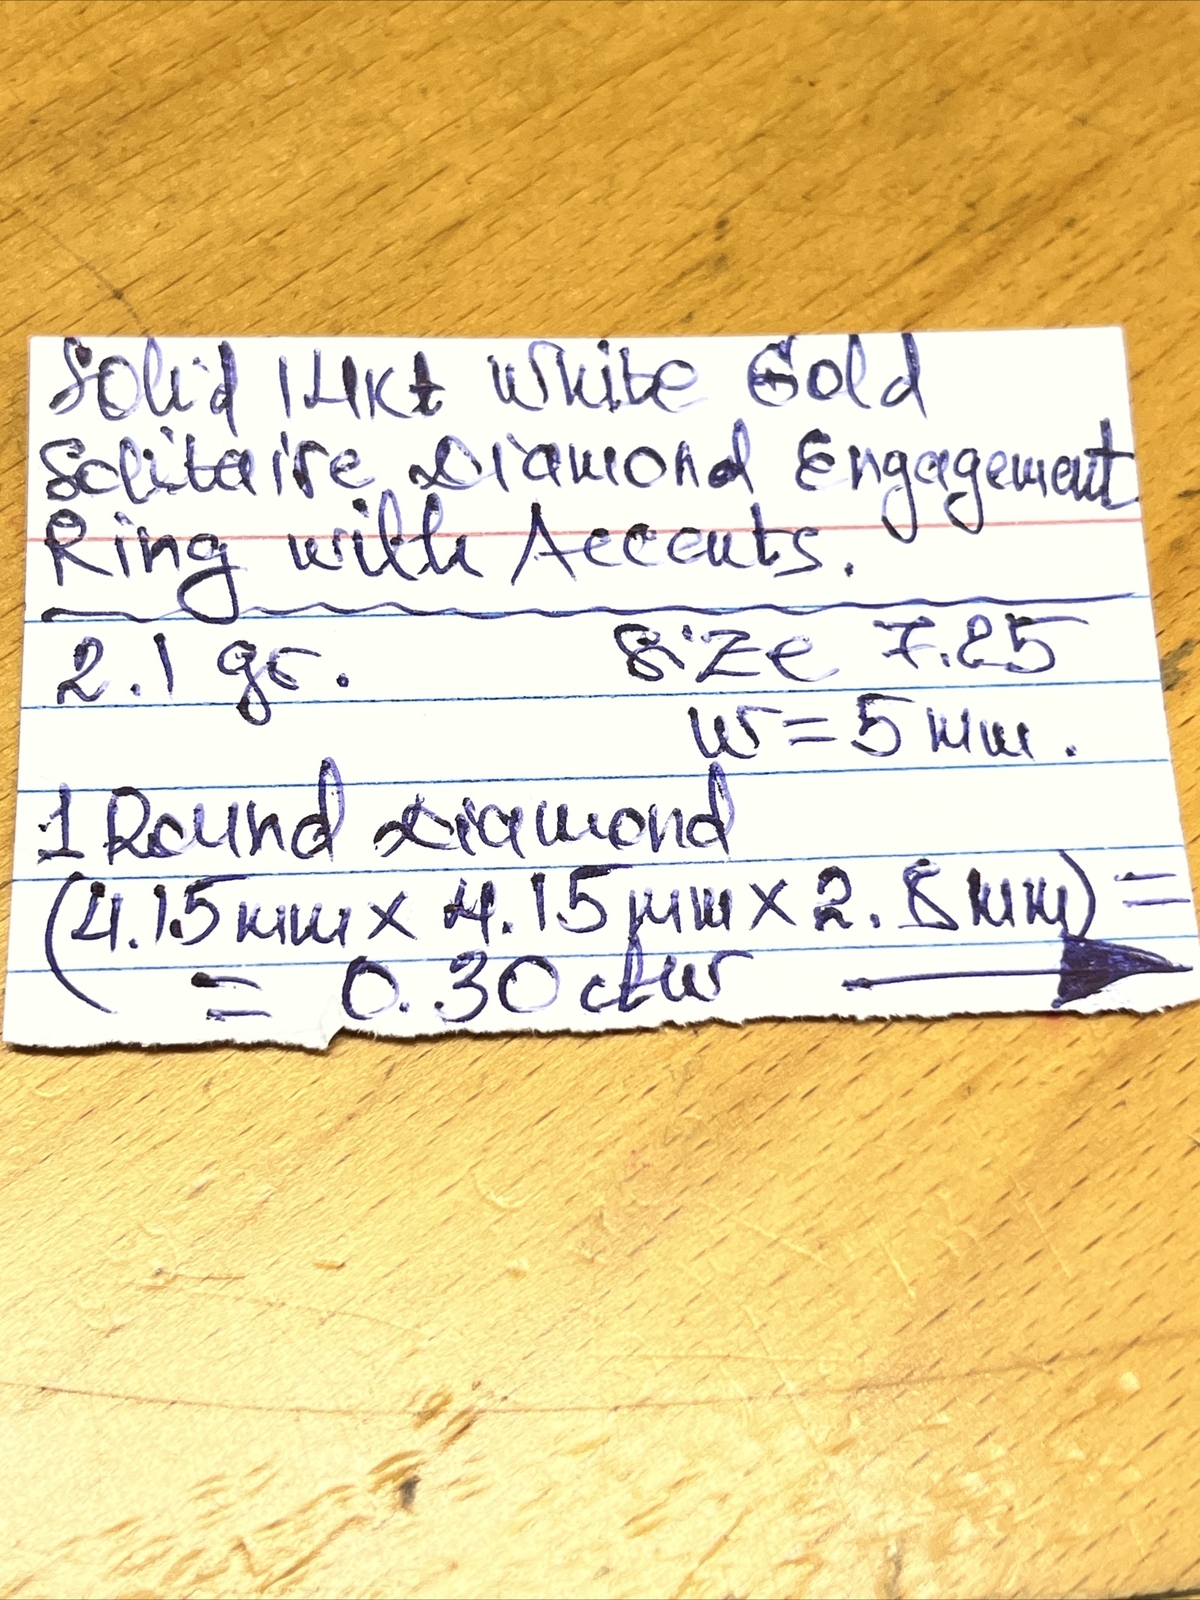 Solid 14kt White Gold
Solitaire Diamond Engagement
Ring with Accents.
2.1 gr. Size 7.25
w = 5 mm.
1 Round Diamond
(4.15 mm x 4.15 mm x 2.8 mm) =
= 0.30 ctw →